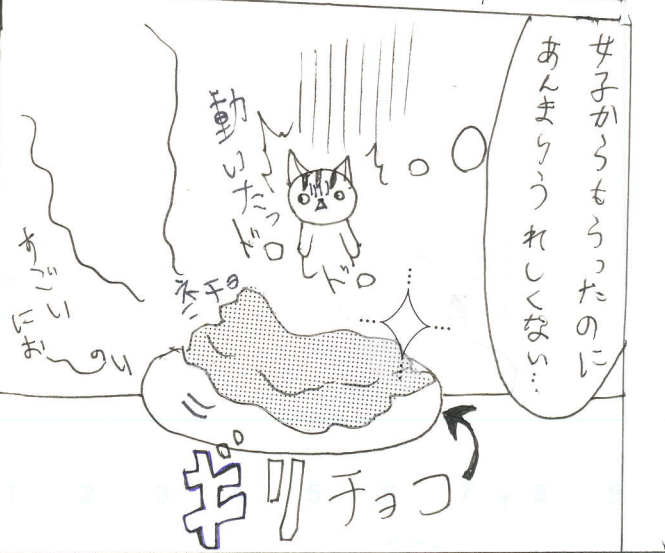 女子からもらったのに
あんまりうれしくない…
動いたっ
ドロ
ドロ
ネチョ
すごい
にお～のい
ギリチョコ